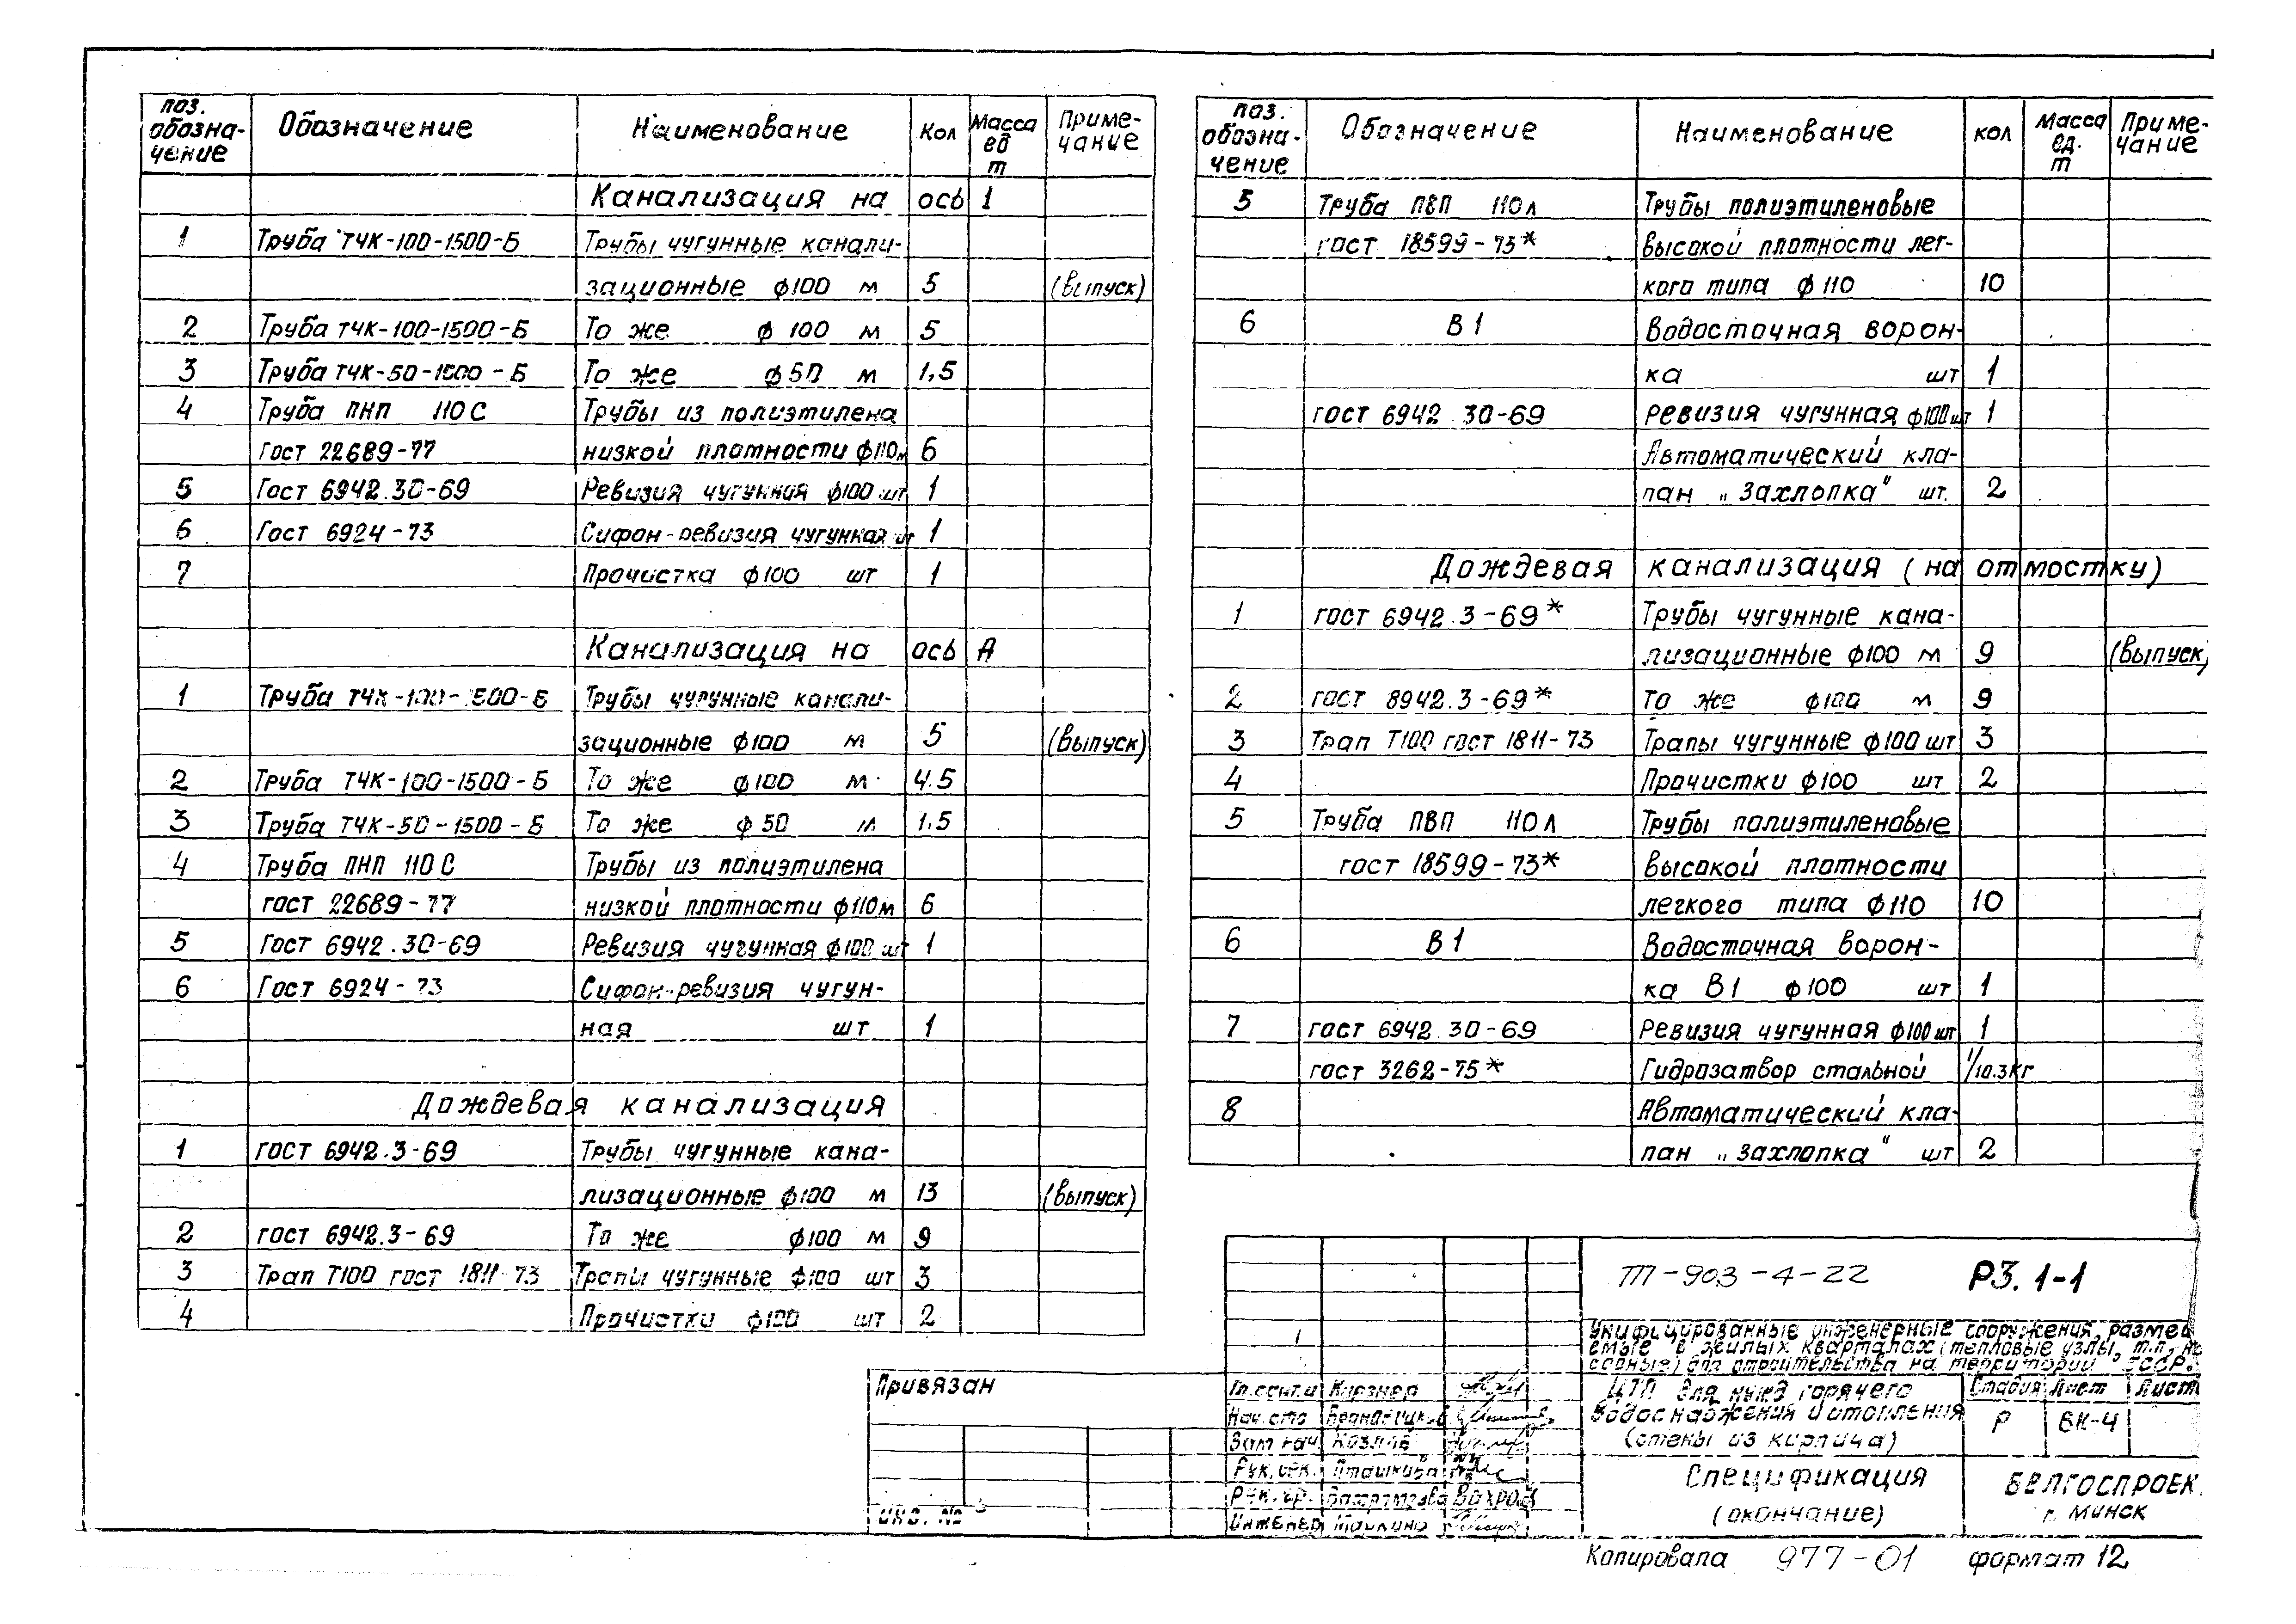 поз. обозна- чение Обозначение Наименование Кол Масса ед т Приме- чание
Канализация на ось 1
1 Труба ТЧК-100-1500-Б Трубы чугунные канали-
зационные ф100 м 5 (выпуск)
2 Труба ТЧК-100-1500-Б То же ф 100 м 5
3 Труба ТЧК-50-1500-Б То же ф50 м 1,5
4 Труба ПНП 110 С Трубы из полиэтилена
Гост 22689-77 низкой плотности ф110м 6
5 Гост 6942.30-69 Ревизия чугунная ф100 шт 1
6 Гост 6924-73 Сифон-ревизия чугунная шт 1
7 Прочистка ф100 шт 1
Канализация на ось А
1 Труба ТЧК-100-1500-Б Трубы чугунные канали-
зационные ф100 м 5 (выпуск)
2 Труба ТЧК-100-1500-Б То же ф100 м 4.5
3 Труба ТЧК-50-1500-Б То же ф 50 м 1.5
4 Труба ПНП 110 С Трубы из полиэтилена
гост 22689-77 низкой плотности ф110м 6
5 Гост 6942.30-69 Ревизия чугунная ф100 шт 1
6 Гост 6924-73 Сифон-ревизия чугун-
ная шт 1
Дождевая канализация
1 гост 6942.3-69 Трубы чугунные кана-
лизационные ф100 м 13 (выпуск)
2 гост 6942.3-69 То же ф100 м 9
3 Трап Т100 гост 1811-73 Трапы чугунные ф100 шт 3
4 Прочистки ф100 шт 2
поз. обозна- чение Обозначение Наименование кол Масса ед. т Приме- чание
5 Труба ПВП 110л Трубы полиэтиленовые
гост 18599-73* высокой плотности лег-
кого типа ф 110 10
6 В1 Водосточная ворон-
ка шт 1
гост 6942.30-69 Ревизия чугунная ф100шт 1
Автоматический кла-
пан „Захлопка" шт. 2
Дождевая канализация (на отмостку)
1 гост 6942.3-69* Трубы чугунные кана-
лизационные ф100 м 9 (выпуск)
2 гост 8942.3-69* То же ф100 м 9
3 Трап Т100 гост 1811-73 Трапы чугунные ф100 шт 3
4 Прочистки ф100 шт 2
5 Труба ПВП 110л Трубы полиэтиленовые
гост 18599-73* высокой плотности
легкого типа ф110 10
6 В1 Водосточная ворон-
ка В1 ф100 шт 1
7 гост 6942.30-69 Ревизия чугунная ф100шт 1
гост 3262-75* Гидрозатвор стальной 1/10.3кг
8 Автоматический кла-
пан „захлопка" шт 2
Привязан
инв. №
ТП-903-4-22 Р3.1-1
Унифицированные инженерные сооружения, размещ
емые в жилых кварталах (тепловые узлы, т.п., на
сосные) для строительства на территории БССР.
Нач. сто
Зам нач. Козлов
Рук. сек.
Рук. гр.
Инженер
ЦТП для нужд горячего
водоснабжения и отопления
(стены из кирпича)
Стадия Лист Лист
Р ВК-4
Спецификация
(окончание)
БЕЛГОСПРОЕК
г. Минск
Копировала 977-01 формат 12